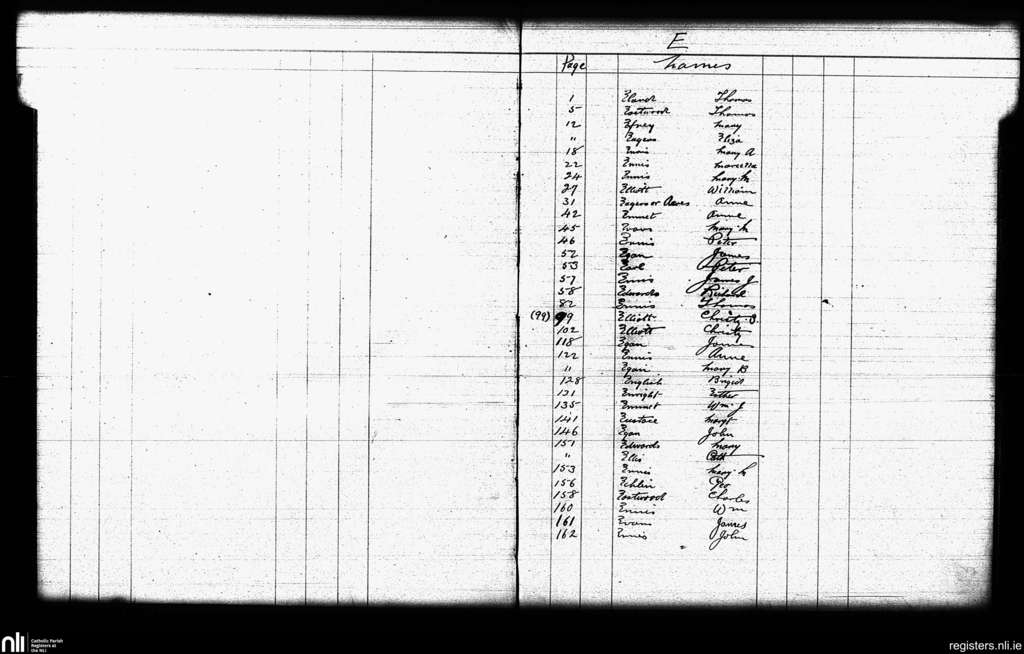 E
Page Names
1 Eland Thomas
5 Eastwood Thomas
12 Efney Mary
" Eagers Eliza
18 Ennis Mary A
22 Ennis Marcella
24 Ennis Mary M
27 Elliott William
31 Eagers or Acres Anne
42 Emmet Anne
45 Evans Mary M
46 Ennis Peter
52 Egan James
53 Earl Peter
57 Ennis James J
58 Edwards Richard
82 Ennis Thomas
(99) 99 Elliott Christy J.
102 Elliott Christy
118 Egan James
122 Ennis Anne
" Egan Mary B
128 English Briget
131 Enright Esther
135 Emmet Wm J
141 Eustace Margt
146 Egan John
151 Edwards Mary
" Ellis Cath
153 Ennis Mary M
156 Echlin Geo
158 Eastwood Charles
160 Ennis Wm
161 Evans James
162 Ennis John
nli Catholic Parish
Registers at
the NLI
registers.nli.ie